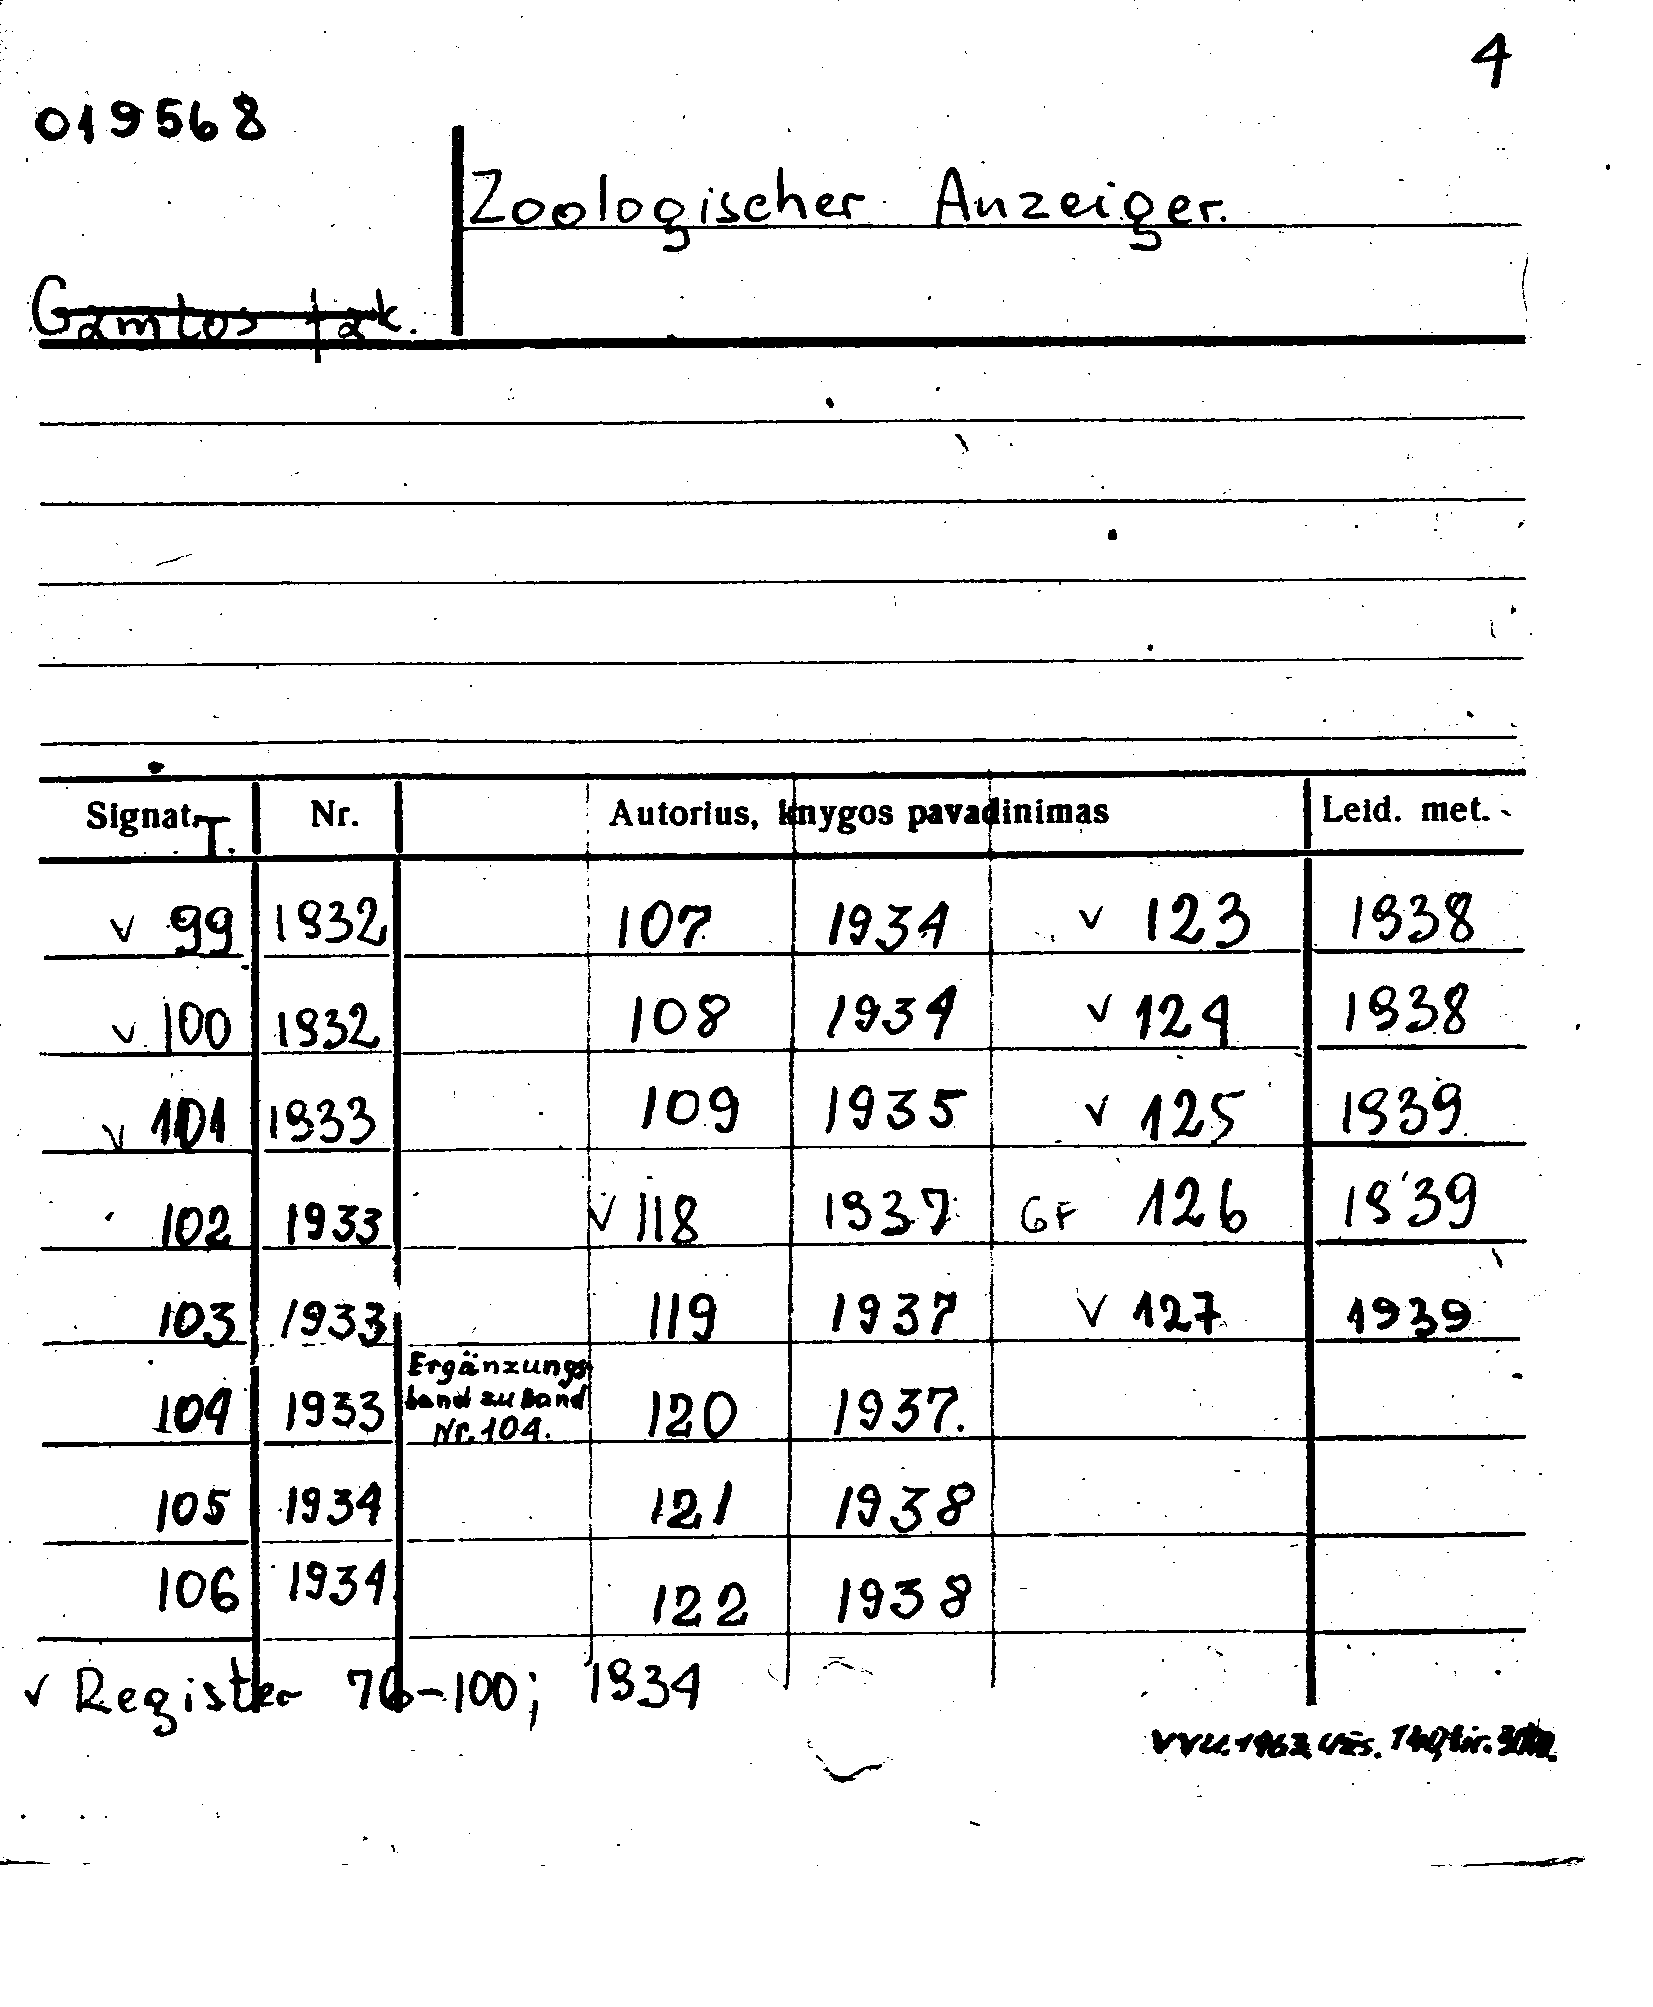 4
019568
Zoologischer Anzeiger.
Gamtos fak.
Signat. Nr. Autorius, knygos pavadinimas Leid. met.
T.
v 99 1932 107 1934 v 123 1938
v 100 1932 108 1934 v 124 1938
v 101 1933 109 1935 v 125 1939
102 1933 v 118 1937 GF 126 1939
103 1933 119 1937 v 127 1939
104 1933 Ergänzungs band zu Band Nr. 104. 120 1937.
105 1934 121 1938
106 1934 122 1938
v Register 76-100; 1934
VVU. 1963